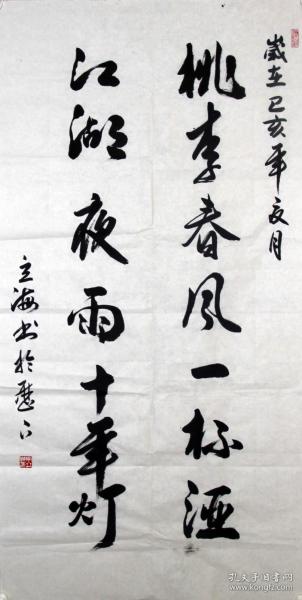 歲在己亥年夏月
桃李春风一杯酒
江湖夜雨十年灯
立海书於歷下
孔夫子旧书网